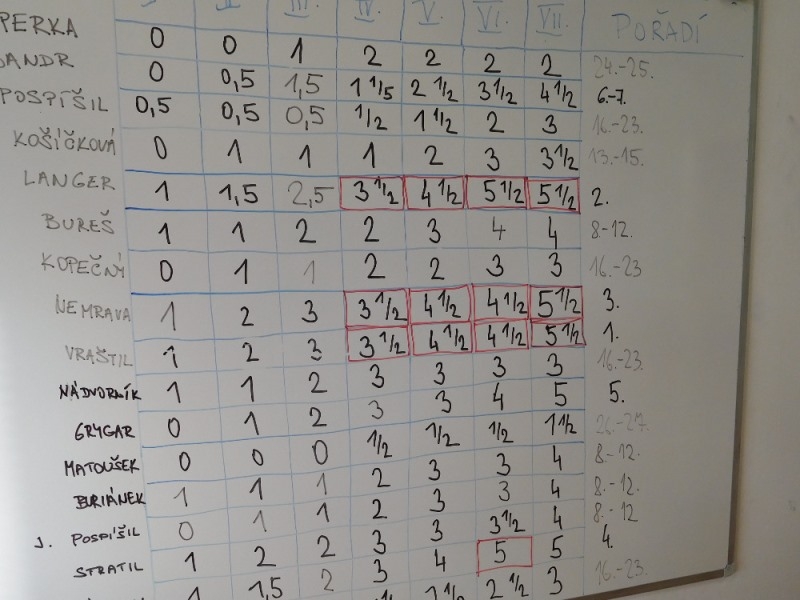 III. IV. V. VI. VII. POŘADÍ
PERKA 0 0 1 2 2 2 2 24.-25.
ANDR 0 0,5 1,5 1 1/5 2 1/2 3 1/2 4 1/2 6.-7.
POSPÍŠIL 0,5 0,5 0,5 1/2 1 1/2 2 3 16.-23.
KOŠÍČKOVÁ 0 1 1 1 2 3 3 1/2 13.-15.
LANGER 1 1,5 2,5 3 1/2 4 1/2 5 1/2 5 1/2 2.
BUREŠ 1 1 2 2 3 4 4 8-12.
KOPEČNÝ 0 1 1 2 2 3 3 16.-23
NEMRAVA 1 2 3 3 1/2 4 1/2 4 1/2 5 1/2 3.
VRAŠTIL 1 2 3 3 1/2 4 1/2 4 1/2 5 1/2 1.
NÁDVORNÍK 1 1 2 3 3 3 3 16.-23.
GRYGAR 0 1 2 3 3 4 5 5.
MATOUŠEK 0 0 0 1/2 1/2 1/2 1 1/2 26.-27.
BURIÁNEK 1 1 1 2 3 3 4 8.-12.
J. POSPÍŠIL 0 1 1 2 3 3 4 8.-12.
STRATIL 1 2 2 3 3 3 1/2 4 8.-12
1 1,5 2 3 4 5 5 4.
2 1/2 3 16.-23.